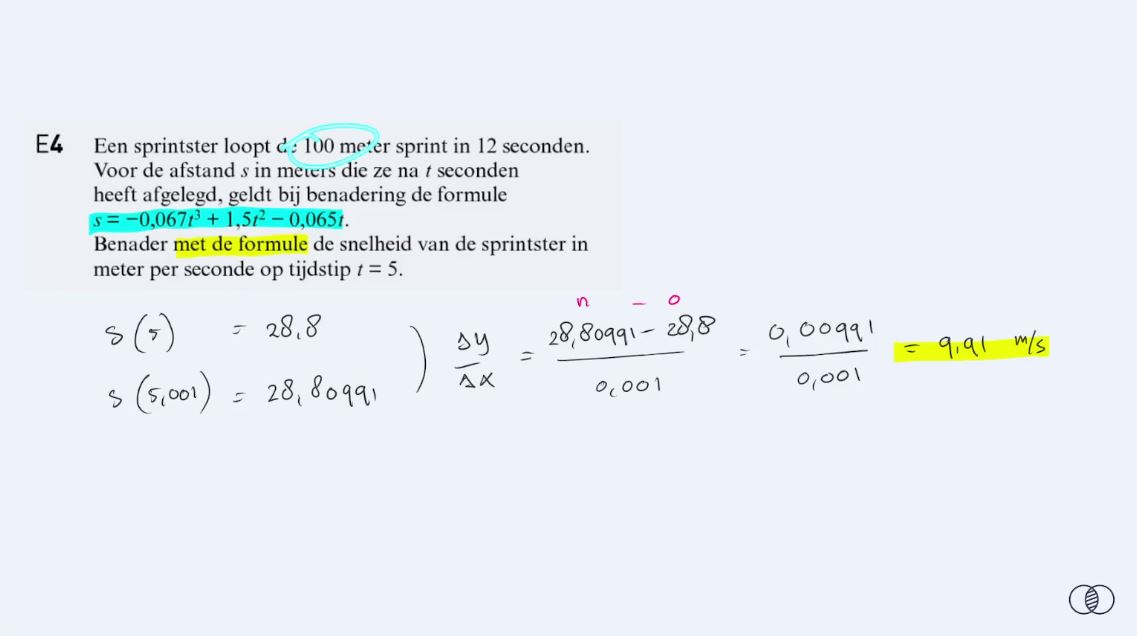 E4 Een sprintster loopt de 100 meter sprint in 12 seconden.
Voor de afstand s in meters die ze na t seconden
heeft afgelegd, geldt bij benadering de formule
s = −0,067t³ + 1,5t² − 0,065t.
Benader met de formule de snelheid van de sprintster in
meter per seconde op tijdstip t = 5.
n − o
s(5) = 28,8
s(5,001) = 28,80991
) Δy/Δx = 28,80991 − 28,8 / 0,001 = 0,00991 / 0,001 = 9,91 m/s